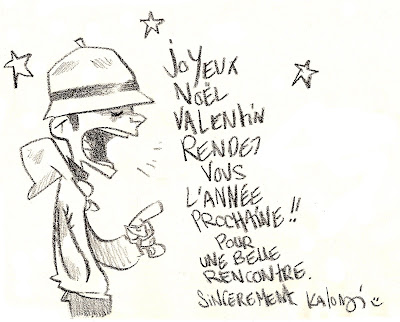 JOYEUX
NOËL
VALENTIN
RENDEZ
VOUS
L'ANNÉE
PROCHAINE!!
POUR
UNE BELLE
RENCONTRE.
SINCEREMENT Kalonji